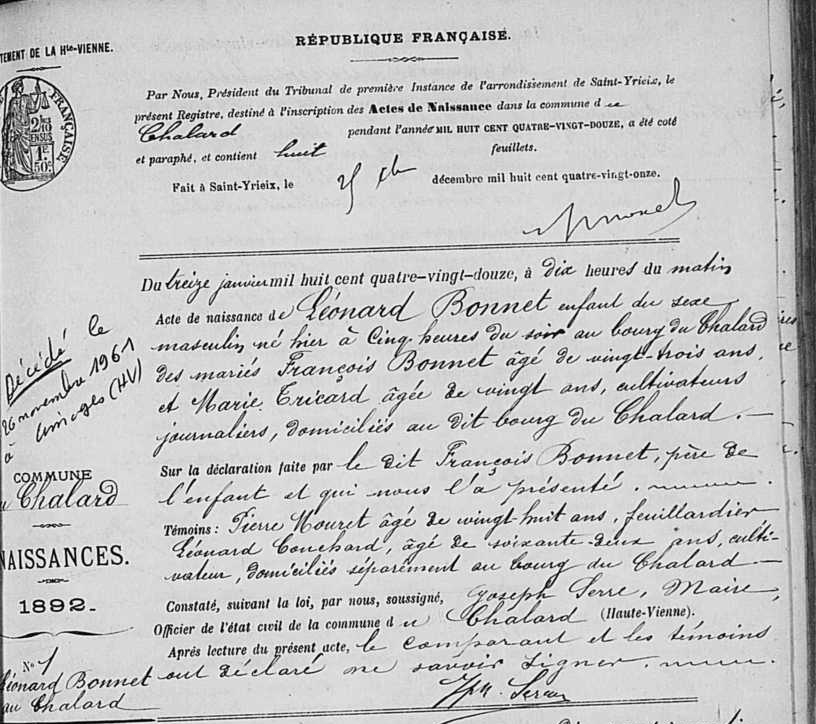 TEMENT DE LA Hte-VIENNE.
RÉPUBLIQUE FRANÇAISE.
FRANÇAISE
2/10
EN SUS
1F
50c
Par Nous, Président du Tribunal de première Instance de l'arrondissement de Saint-Yrieix, le
présent Registre, destiné à l'inscription des Actes de Naissance dans la commune d u
Chalard pendant l'année MIL HUIT CENT QUATRE-VINGT-DOUZE, a été coté
et paraphé, et contient huit feuillets.
Fait à Saint-Yrieix, le décembre mil huit cent quatre-vingt-onze.
Du treize janvier mil huit cent quatre-vingt-douze, à dix heures du matin
Acte de naissance de Léonard Bonnet enfant du sexe
masculin né hier à Cinq heures du soir au bourg du Chalard
des mariés François Bonnet âgé de vingt-trois ans,
et Marie Tricard âgée de vingt ans, cultivateurs
journaliers, domiciliés au dit bourg du Chalard.
Sur la déclaration faite par le dit François Bonnet, père de
l'enfant et qui nous l'a présenté.
Témoins : Pierre Mouret âgé de vingt-huit ans, feuillardier
Léonard Couchard, âgé de soixante-deux ans, culti-
vateur, domiciliés séparément au bourg du Chalard
Constaté, suivant la loi, par nous, soussigné, Joseph Serre, Maire,
Officier de l'état civil de la commune d u Chalard (Haute-Vienne).
Après lecture du présent acte, le comparant et les témoins
ont déclaré ne savoir signer.
Décédé le
26 novembre 1961
à Limoges (HV)
COMMUNE
u Chalard
NAISSANCES.
1892.
N° 1
Léonard Bonnet
au Chalard